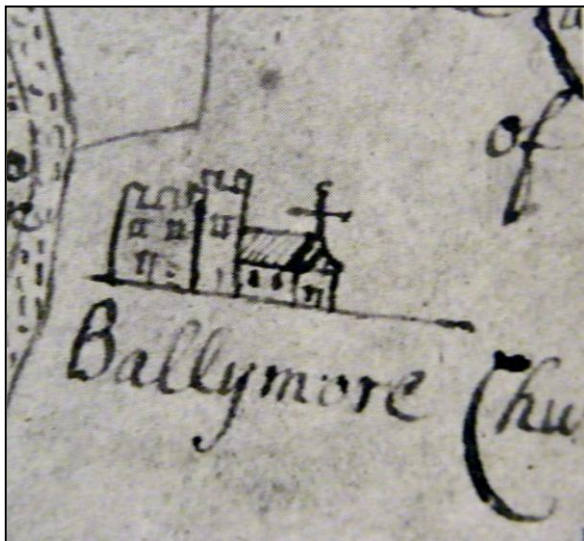 of
Ballymore Chu